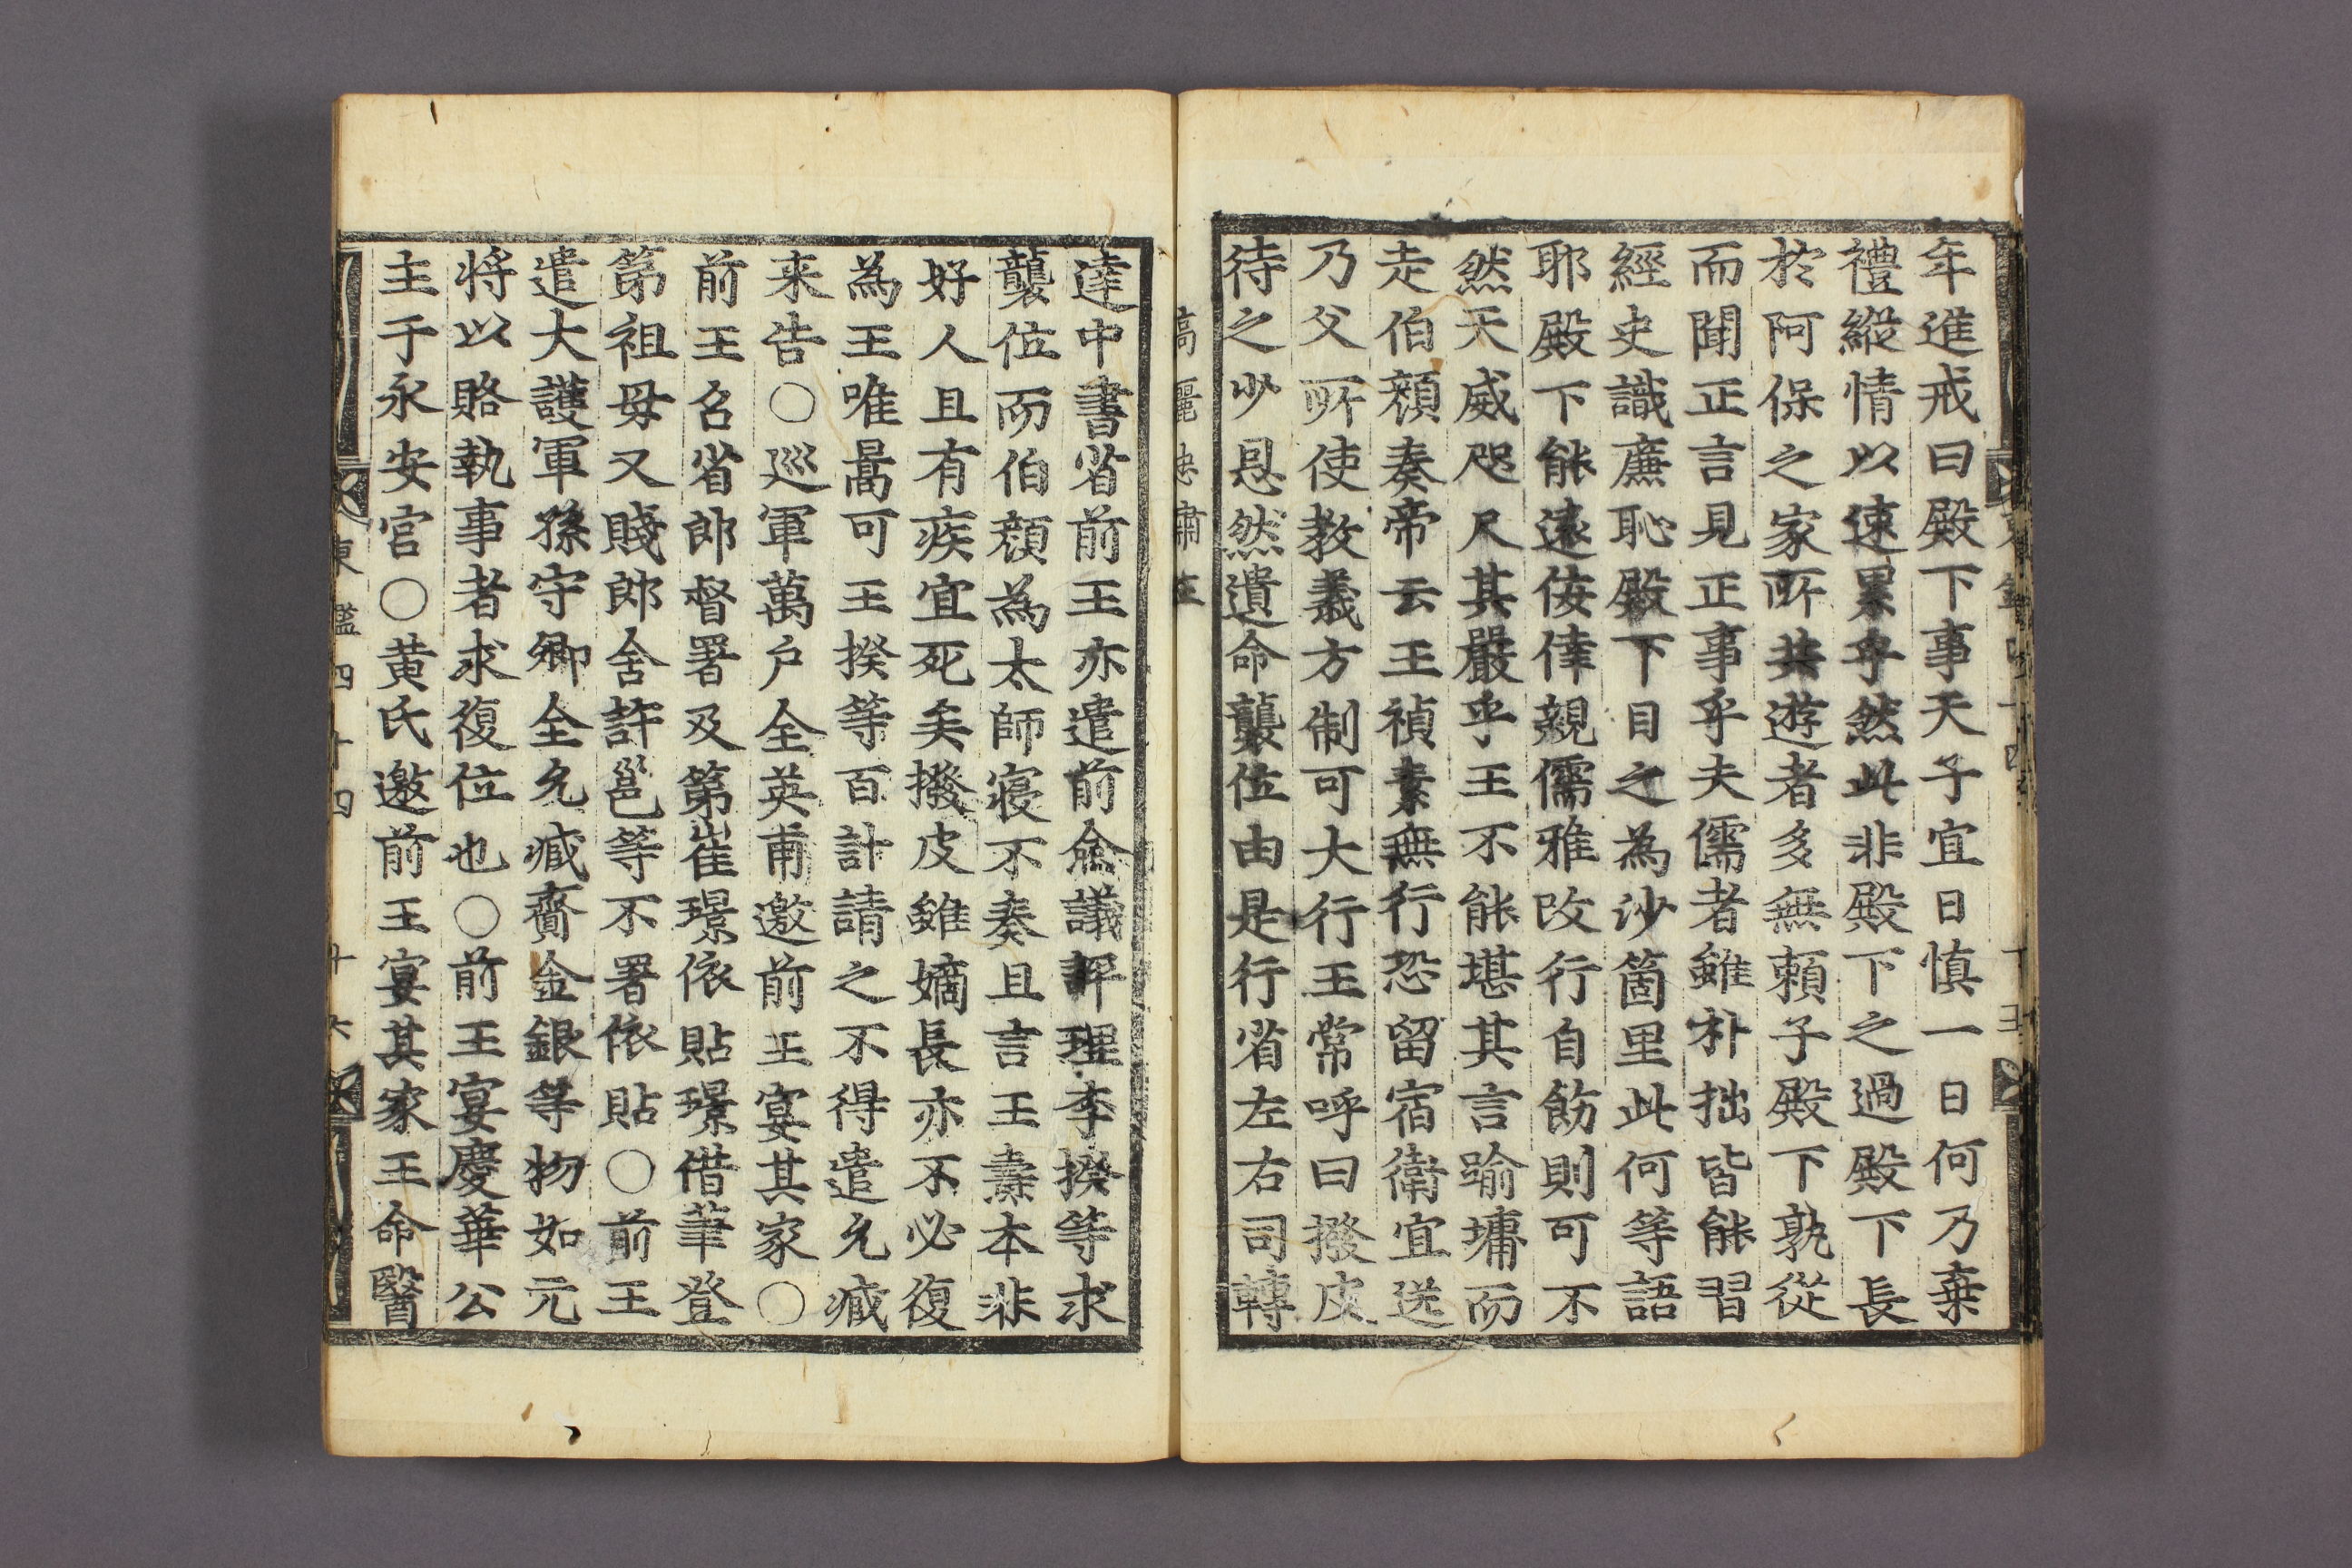 年進戒曰殿下事天子宜日慎一日何乃棄
禮縱情以速累乎然此非殿下之過殿下長
於阿保之家所共遊者多無賴子殿下孰從
而聞正言見正事乎夫儒者雖朴拙皆能習
經史識廉恥殿下目之為沙箇里此何等語
耶殿下能遠佞倖親儒雅改行自飭則可不
然天威咫尺其嚴乎王不能堪其言踰墉而
走伯顔奏帝云王禎素無行恐留宿衛宜送
乃父所使教義方制可大行王常呼曰撥皮
待之少恩然遺命襲位由是行省左右司轉
高麗忠肅王
達中書省前王亦遣前僉議評理李揆等求
襲位而伯顔為太師寢不奏且言王燾本非
好人且有疾宜死矣撥皮雖嫡長亦不必復
為王唯暠可王揆等百計請之不得遣允臧
来告○巡軍萬户全英甫邀前王宴其家○
前王召省郎督署及第崔璟依貼璟借筆登
第祖母又賤郎舍許邕等不署依貼○前王
遣大護軍孫守卿全允臧齎金銀等物如元
将以賂執事者求復位也○前王宴慶華公
主于永安宮○黄氏邀前王宴其家王命醫
東鑑四十四 十六